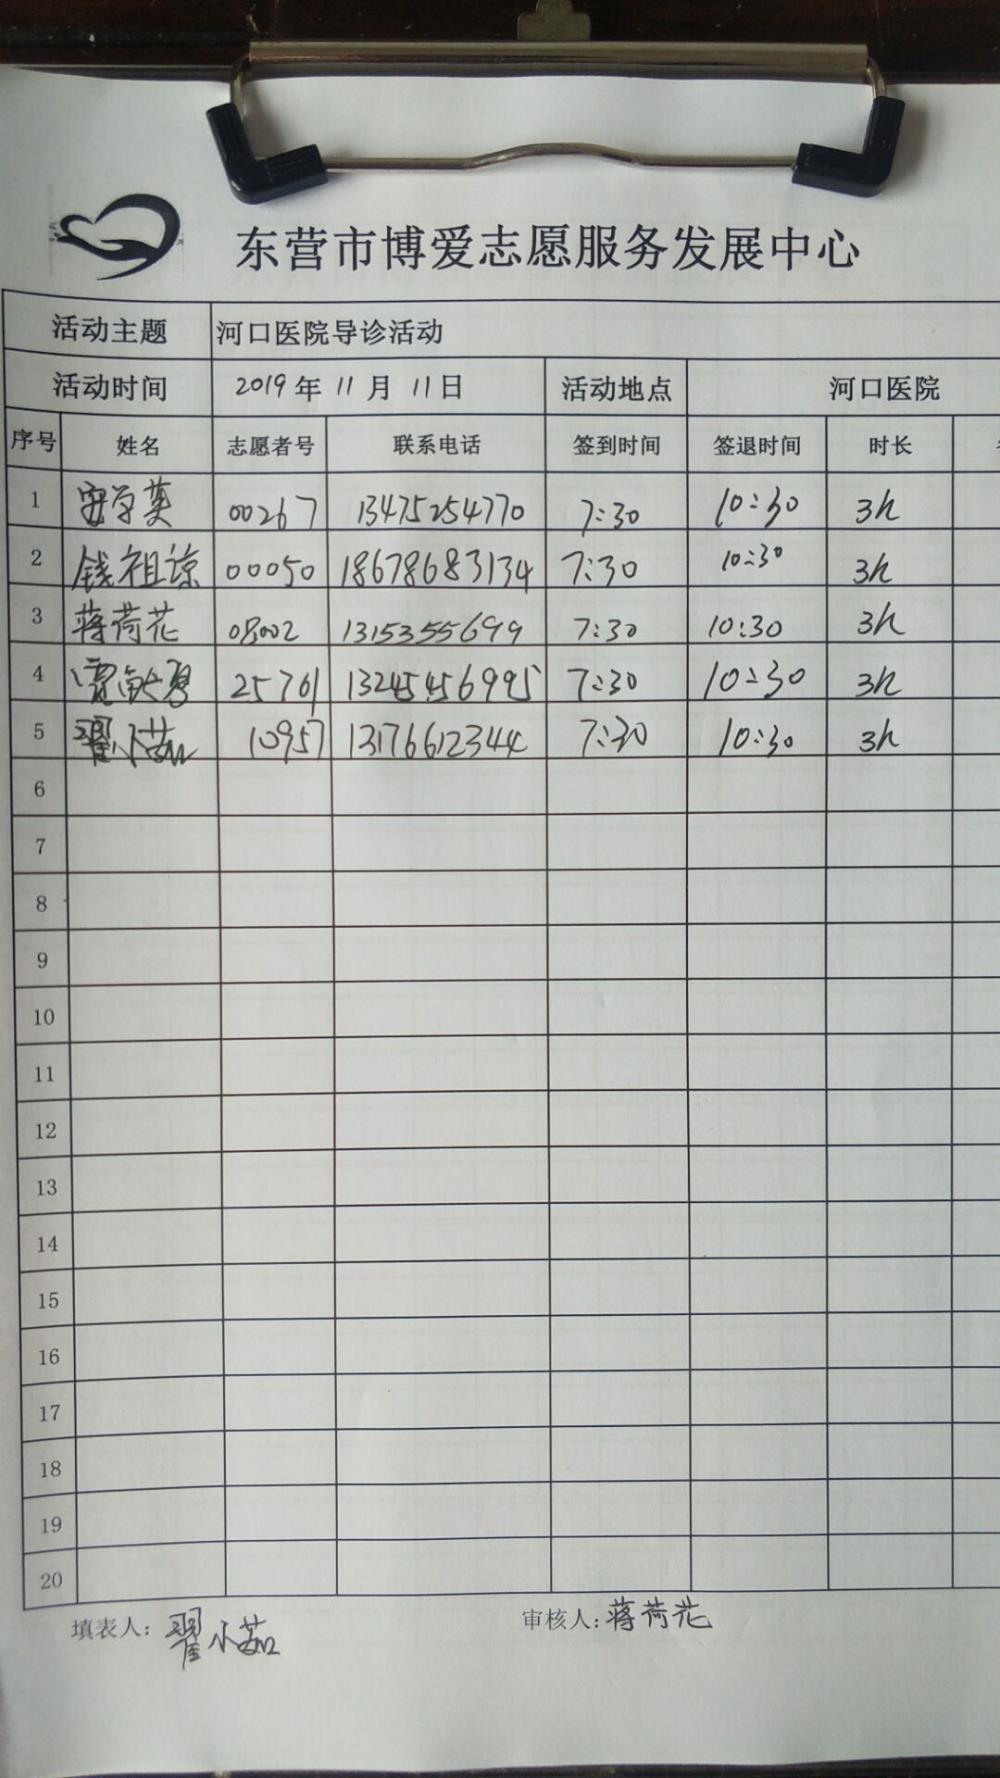 东营市博爱志愿服务发展中心
活动主题 河口医院导诊活动
活动时间 2019年11月11日 活动地点 河口医院
序号 姓名 志愿者号 联系电话 签到时间 签退时间 时长
1 安学英 00267 13475254770 7:30 10:30 3h
2 钱祖谅 00050 18678683134 7:30 10:30 3h
3 蒋荷花 08002 13153555699 7:30 10:30 3h
4 25761 13245456995 7:30 10:30 3h
5 翟小茹 10957 13176612344 7:30 10:30 3h
6
7
8
9
10
11
12
13
14
15
16
17
18
19
20
填表人：翟小茹 审核人：蒋荷花